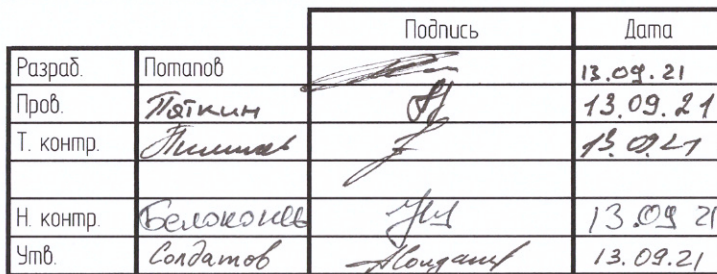 Подпись Дата
Разраб. Потапов 13.09.21
Пров. Пяткин 13.09.21
Т. контр. 13.09.21
Н. контр. 13.09 21
Утв. Солдатов 13.09.21